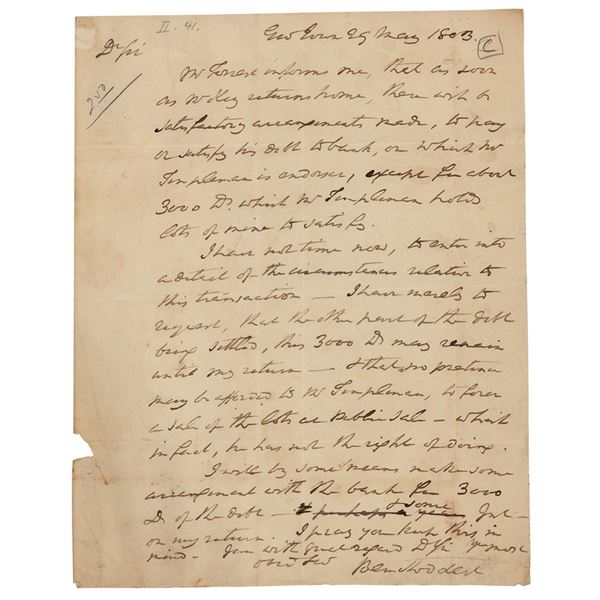 II. 41.
Geo Town 29 May 1803.
C
Dr Sir
2nd
Mr Forrest informs me, that as soon
as returns home, there will be
satisfactory arrangements made, to pay
or satisfy his debt to bank, on which Mr
Templeman is endorser, except for about
3000 Ds. which Mr Templeman holds
lots of mine to satisfy.
I have not time now, to enter into
a detail of the circumstances relative to
this transaction — I have merely to
request, that the other part of the debt
being settled, this 3000 Ds may remain
until my return — & that no pretence
may be afforded to Mr Templeman, to force
a sale of the lots at Public Sale — which
in fact, he has not the right of doing.
I will by some means make some
arrangement with the bank for 3000
Ds of the debt — & perhaps & some Int —
on my return. I pray you keep this in
mind. I am with great regard Dr Sir Yr most
obed Ser
Ben Stoddert